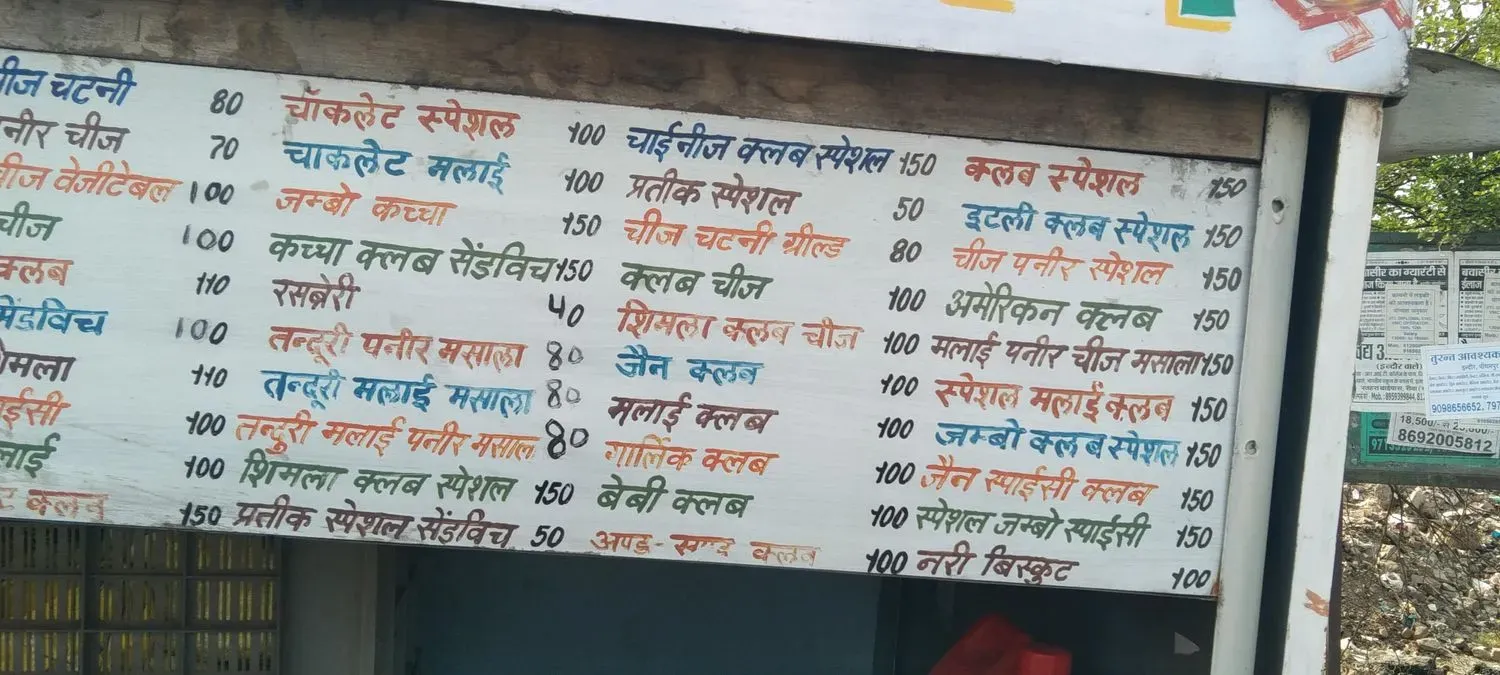 चटनी 80
चीज 70
वेजीटेबल 100
चीज 100
क्लब 110
सेंडविच 100
110
100
100
क्लब 150
चॉकलेट स्पेशल 100
चाकलेट मलाई 100
जम्बो कच्चा 150
कच्चा क्लब सेंडविच 150
रसब्रेरी 40
तन्दूरी पनीर मसाला 80
तन्दूरी मलाई मसाला 80
तन्दुरी मलाई पनीर मसाल 80
शिमला क्लब स्पेशल 150
प्रतीक स्पेशल सेंडविच 50
चाईनीज क्लब स्पेशल 150
प्रतीक स्पेशल 50
चीज चटनी ग्रील्ड 80
क्लब चीज 100
शिमला क्लब चीज 100
जैन क्लब 100
मलाई क्लब 100
गार्लिक क्लब 100
बेबी क्लब 100
क्लब 100
क्लब स्पेशल 150
इटली क्लब स्पेशल 150
चीज पनीर स्पेशल 150
अमेरिकन क्लब 150
मलाई पनीर चीज मसाला 150
स्पेशल मलाई क्लब 150
जम्बो क्लब स्पेशल 150
जैन स्पाईसी क्लब 150
स्पेशल जम्बो स्पाईसी 150
नरी बिस्कुट 100
का ग्यारंटी से
(इन्दौर वाले)
तुरन्त आवश्यक
9098656652, 797
8692005812